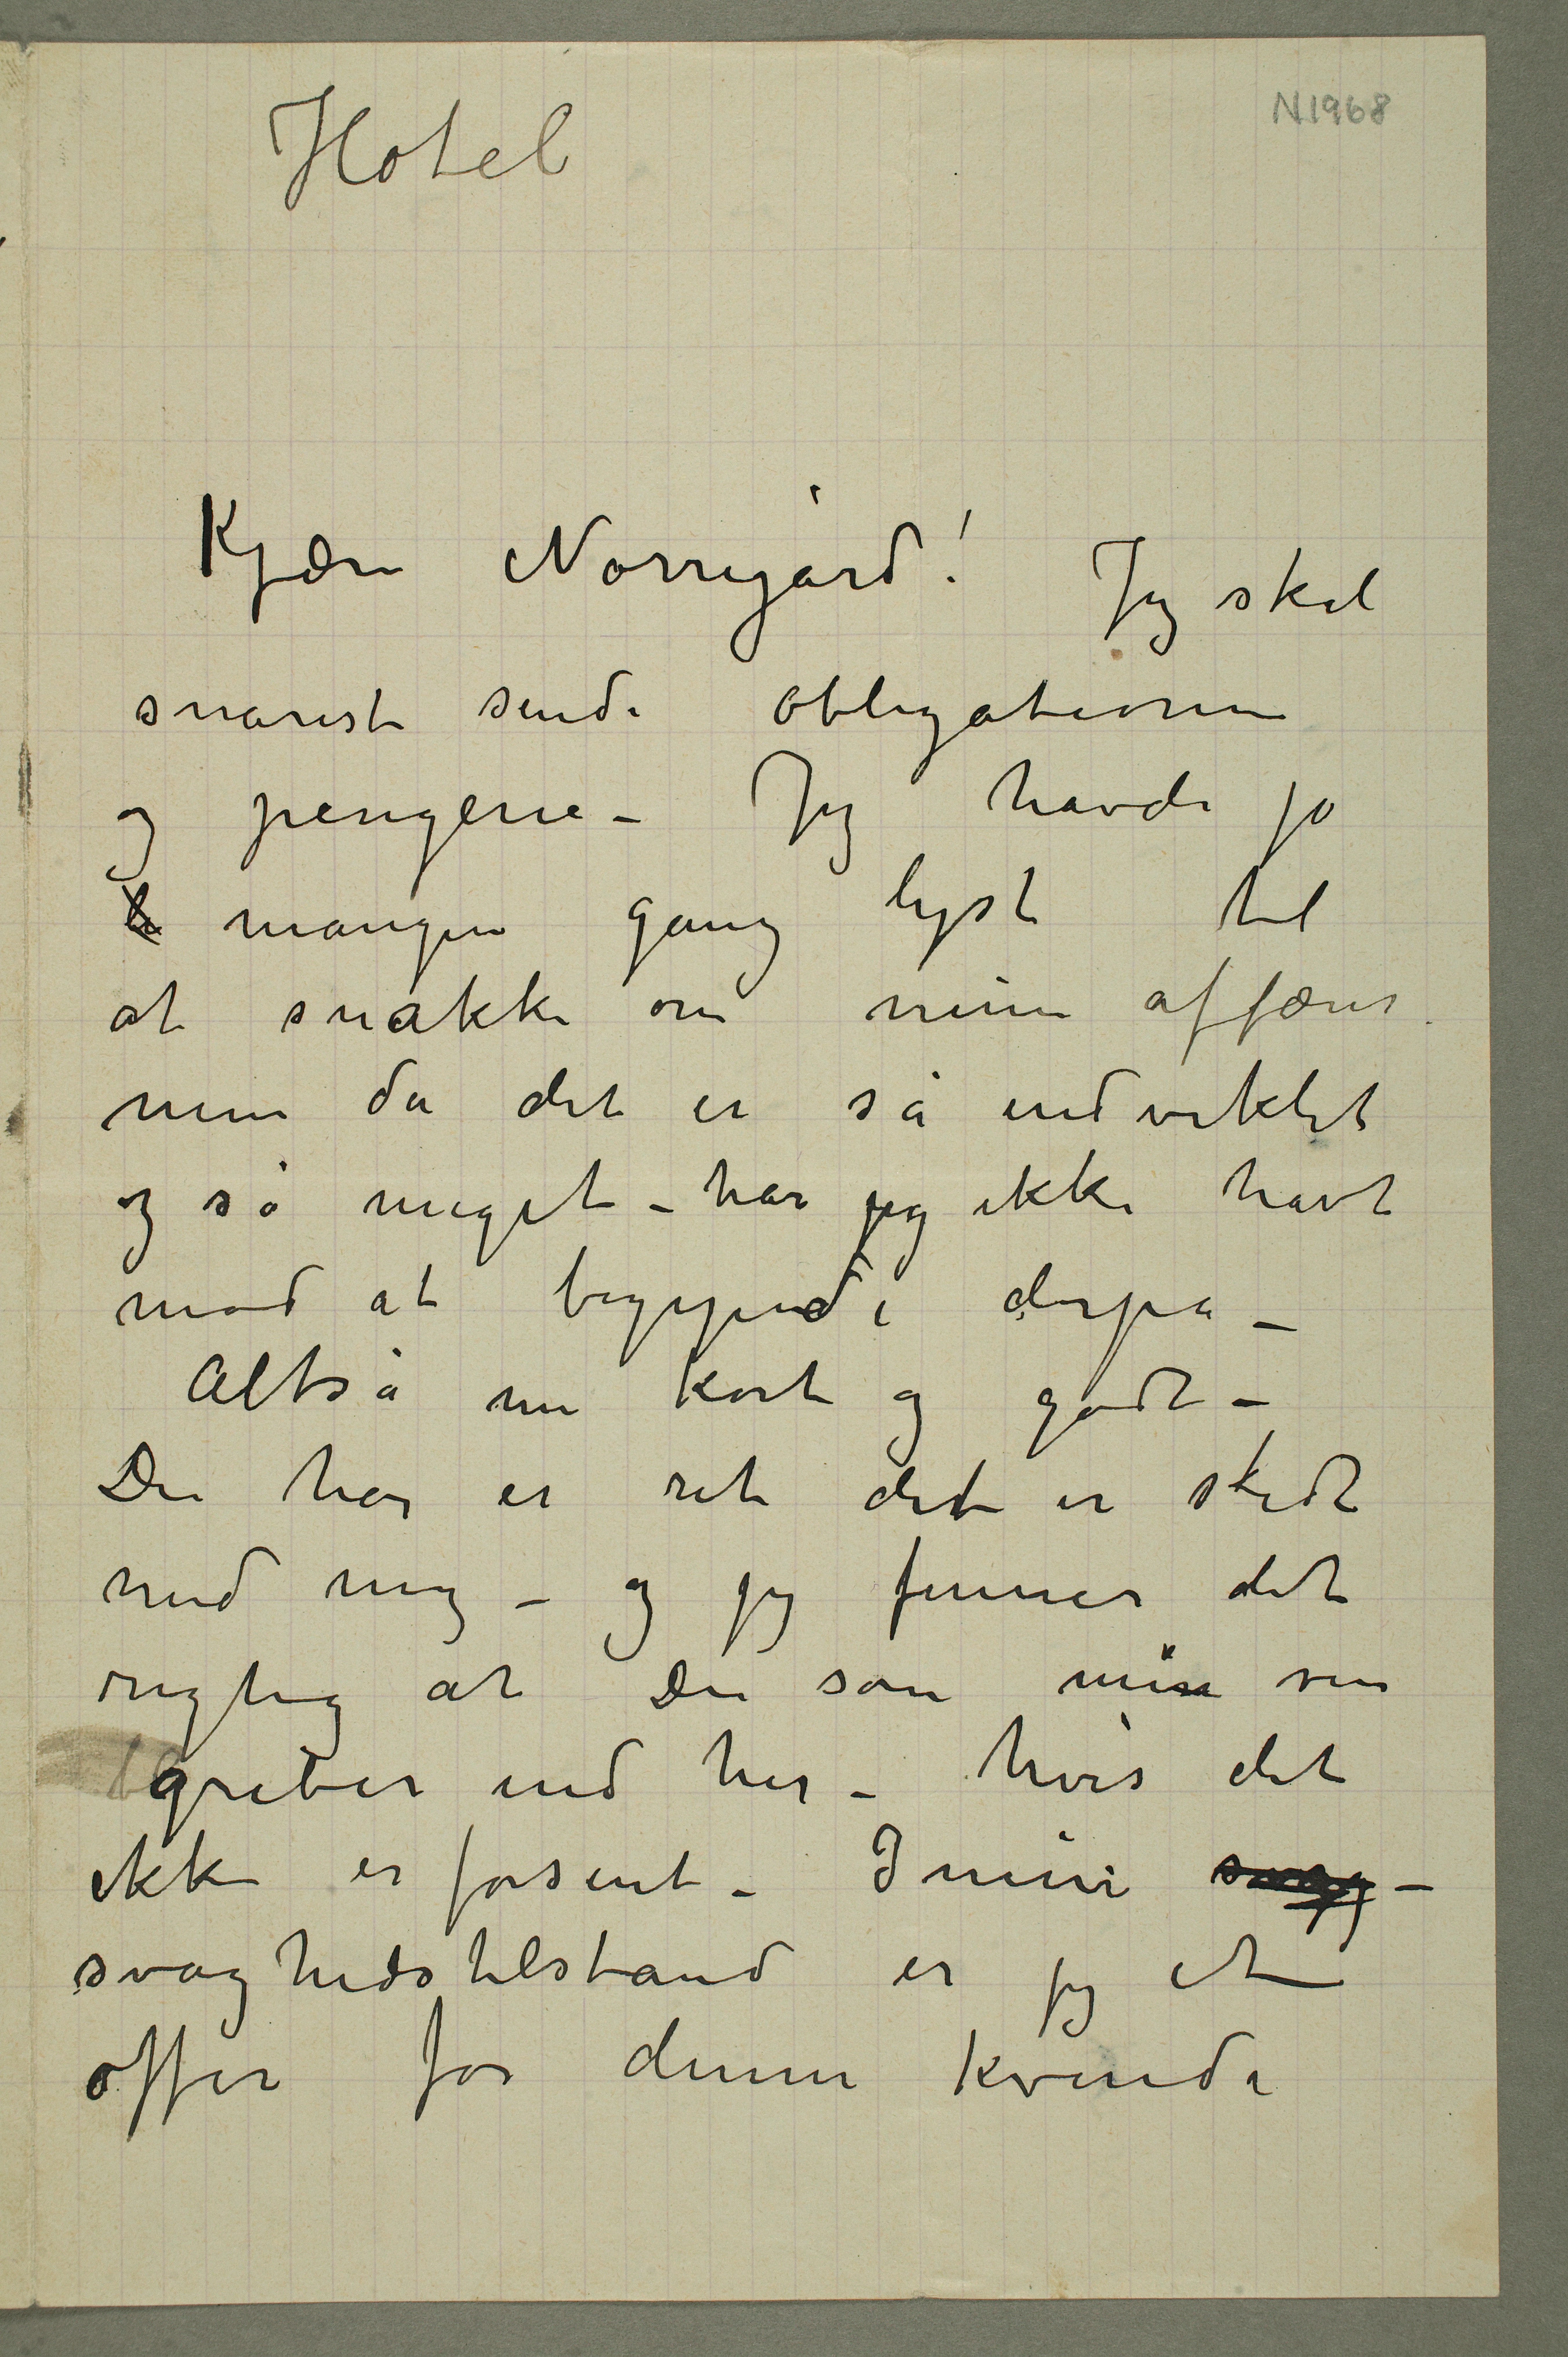 Hotel
N1968
Kjære Nørregård! Jeg skal
snarest sende obligationen
og pengene – Jeg havde jo
li mangen gang lyst til
at snakke om mine affærer
men da det er så indviklet
og så meget – har jeg ikke havt
mod at begynde derpå –
Altså nu kort og godt –
Du har er ret det er skedt
med mig – og jeg finner det
rigtig at Du som min ven
griber ind her – hvis det
ikke er forsent – I min svag –
svaghedstilstand er jeg et
offer for denne kvinde